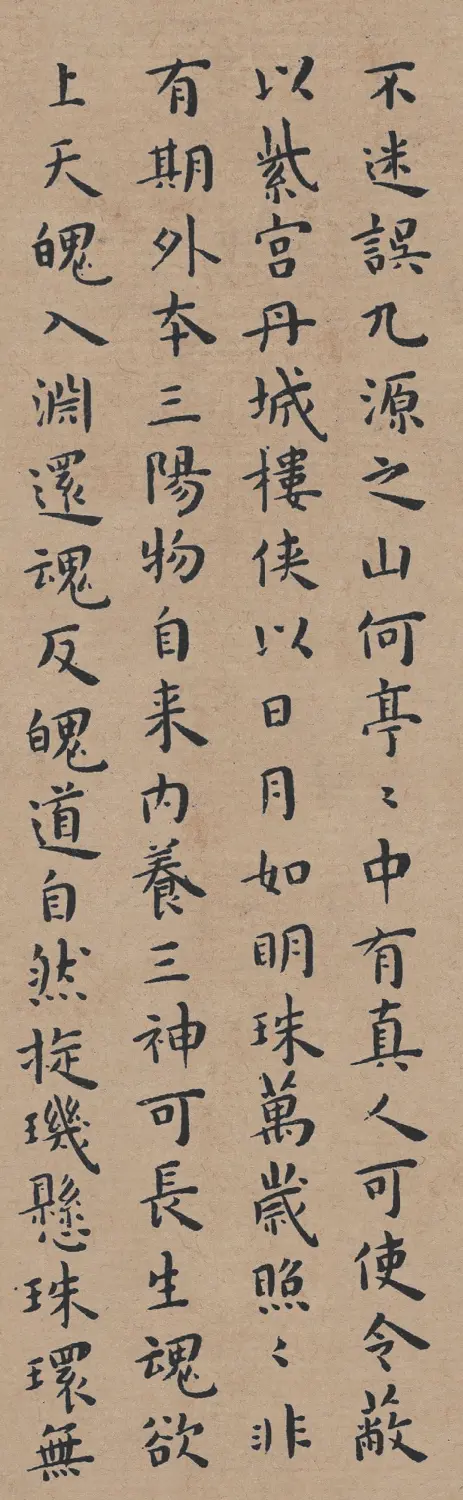 不迷誤九源之山何亭〻中有真人可使令蔽
以紫宫丹城樓侠以日月如明珠萬歳照〻非
有期外夲三陽物自来内養三神可長生魂欲
上天魄入淵還魂反魄道自然㧕璣懸珠環無